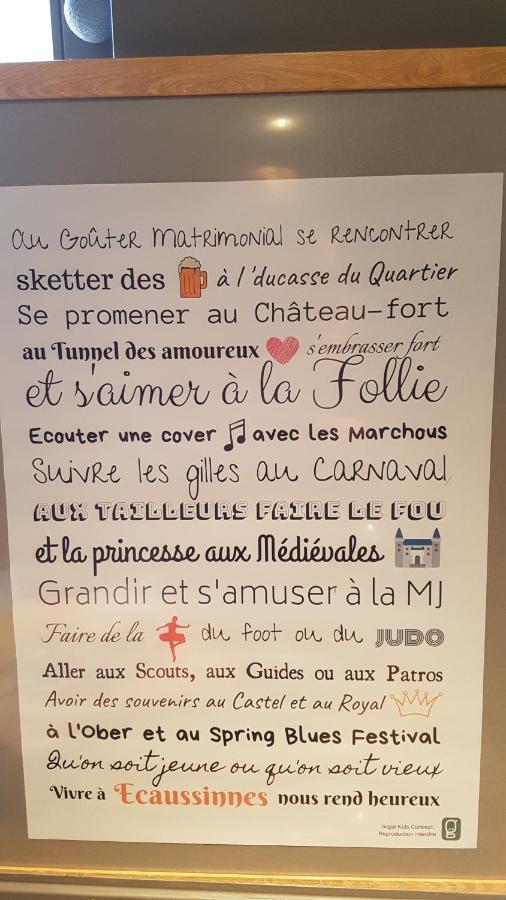 au Goûter Matrimonial se rencontrer
sketter des à l'ducasse du Quartier
Se promener au Château-fort
au Tunnel des amoureux s'embrasser fort
et s'aimer à la Follie
Ecouter une cover avec les Marchous
Suivre les gilles au Carnaval,
AUX TAILLEURS FAIRE LE FOU
et la princesse aux Médiévales
Grandir et s'amuser à la MJ
Faire de la du foot ou du JUDO
Aller aux Scouts, aux Guides ou aux Patros
Avoir des souvenirs au Castel et au Royal
à l'Ober et au Spring Blues Festival
Qu'on soit jeune ou qu'on soit vieux
Vivre à Ecaussinnes nous rend heureux
Ikigai Kids Concept
Reproduction interdite